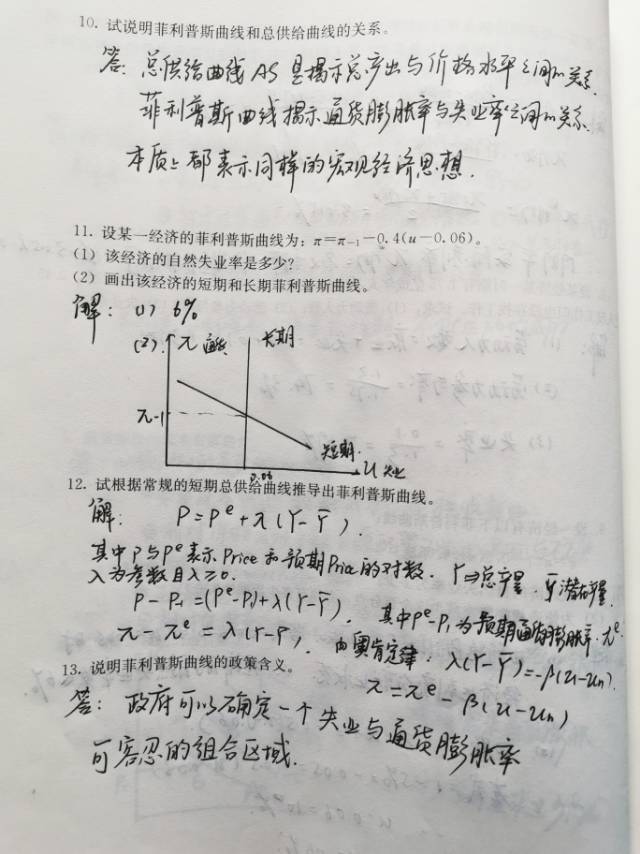 10. 试说明菲利普斯曲线和总供给曲线的关系。
答: 总供给曲线 AS 是揭示总产出与价格水平之间的关系.
菲利普斯曲线揭示通货膨胀率与失业率之间的关系.
本质上都表示同样的宏观经济思想.
11. 设某一经济的菲利普斯曲线为：π＝π₋₁－0.4(u－0.06)。
(1) 该经济的自然失业率是多少?
(2) 画出该经济的短期和长期菲利普斯曲线。
解: (1) 6%
(2). π 通胀 长期
π-1
短期.
0.06 u 失业
12. 试根据常规的短期总供给曲线推导出菲利普斯曲线。
解: P=Pᵉ+λ(Y-Ȳ).
其中P与Pᵉ表示Price和预期Price的对数. Y⇒总产量. Ȳ潜在产量.
λ为参数且λ≥0.
P-P₋₁=(Pᵉ-P₋₁)+λ(Y-Ȳ). 其中Pᵉ-P₋₁为预期通货膨胀率. πᵉ
π-πᵉ=λ(Y-Ȳ). 由奥肯定律: λ(Y-Ȳ)=-β(u-uₙ)
π=πᵉ-β(u-uₙ)
13. 说明菲利普斯曲线的政策含义。
答: 政府可以确定一个失业与通货膨胀率
可容忍的组合区域.